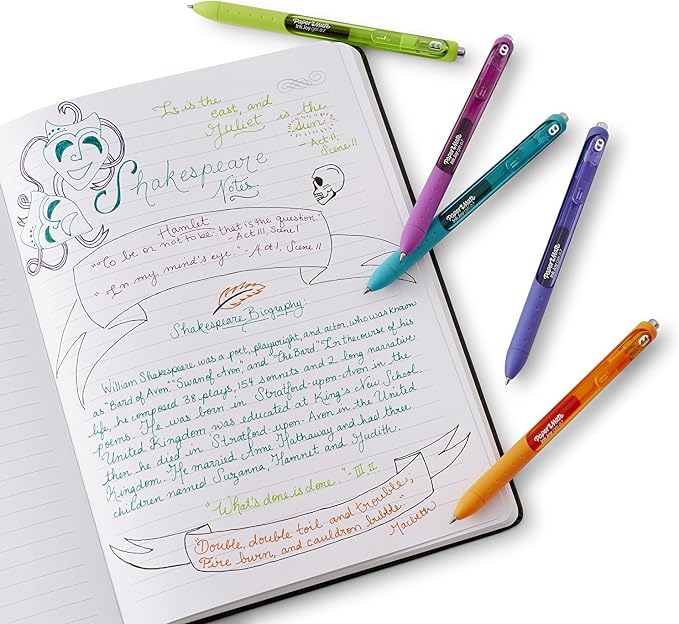 It is the
east, and
Juliet is the
sun
- Act II,
Scene II
Shakespeare
Notes
Hamlet
"To be or not to be: that is the question."
- Act III, Scene I
"In my mind's eye." - Act I, Scene II
Shakespeare Biography:
William Shakespeare was a poet, playwright, and actor, who was known
as "Bard of Avon" "Swan of Avon", and "The Bard." In the course of his
life, he composed 38 plays, 154 sonnets and 2 long narrative
poems. He was born in Stratford-upon-Avon in the
United Kingdom, was educated at King's New School
then he died in Stratford-upon-Avon in the United
Kingdom. He married Anne Hathaway and had three
children named Suzanna, Hamnet and Judith.
"What's done is done." - III II
"Double, double toil and trouble,
Fire burn, and cauldron bubble."
Macbeth
Paper Mate
InkJoy gel 0.7
Paper Mate
InkJoy gel 0.7
Paper Mate
InkJoy gel 0.7
Paper Mate
InkJoy gel 0.7
Paper Mate
InkJoy gel 0.7